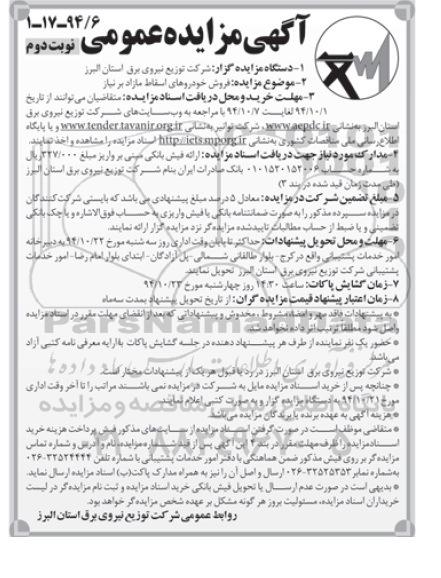 آگهی مزایده عمومی ۹۴/۶-۱۷-۱
نوبت دوم
۱-دستگاه مزایده گزار: شرکت توزیع نیروی برق استان البرز
۲-موضوع مزایده: فروش خودروهای اسقاط مازاد بر نیاز
۳-مهلت خرید و محل دریافت اسناد مزایده: متقاضیان می‌توانند از تاریخ
۹۴/۱۰/۱ لغایت ۹۴/۱۰/۷ با مراجعه به وب‌سایت‌های شرکت توزیع نیروی برق
استان البرز به‌نشانی www.aepdc.ir، شرکت توانیر به‌نشانی www.tender.tavanir.org.ir و یا پایگاه
اطلاع‌رسانی ملی مناقصات کشوری به‌نشانی http://iets.mporg.ir اسناد مزایده را مشاهده و اخذ نمایند.
۴-مدارک مورد نیاز جهت دریافت اسناد مزایده: ارائه فیش بانکی مبنی بر واریز مبلغ ۳۲۷/۰۰۰ ریال
به شماره حساب ۰۱۰۱۵۲۰۱۵۲۰۰۶ بانک صادرات ایران بنام شرکت توزیع نیروی برق استان البرز
(طی مدت زمان قید شده در بند ۳)
۵-مبلغ تضمین شرکت در مزایده: معادل ۵ درصد مبلغ پیشنهادی می باشد که بایستی شرکت‌کنندگان
در مزایده سپرده مذکور را به صورت ضمانتنامه بانکی یا فیش واریزی به حساب فوق‌الاشاره و یا چک بانکی
تضمینی و یا ضبط از حساب مطالبات تاییدشده مزایده‌گر نزد مزایده گزار ارائه نمایند.
۶-مهلت و محل تحویل پیشنهادات: حداکثر تا پایان وقت اداری روز سه شنبه مورخ ۹۴/۱۰/۲۲ به دبیرخانه
امور خدمات پشتیبانی واقع در کرج- بلوار طالقانی شمالی - پل آزادگان- ابتدای بلوار امام رضا- امور خدمات
پشتیبانی شرکت توزیع نیروی برق استان البرز تحویل نمایند.
۷-زمان گشایش پاکات: ساعت ۱۴:۳۰ روز چهارشنبه مورخ ۹۴/۱۰/۲۳
۸-زمان اعتبار پیشنهاد قیمت مزایده گران: از تاریخ تحویل پیشنهاد بمدت سه‌ماه
* به پیشنهادات فاقد مهر و امضاء، مشروط، مخدوش و پیشنهاداتی که بعد از انقضای مهلت مقرر در اسناد مزایده
واصل شود مطلقا ترتیب اثر داده نخواهد شد.
* حضور یک نفر نماینده از طرف هر پیشنهاد دهنده در جلسه گشایش پاکات با ارایه معرفی نامه کتبی آزاد
می‌باشد.
* شرکت توزیع نیروی برق استان البرز در رد یا قبول هر یک از پیشنهادات مختار است.
* چنانچه پس از خرید اسناد مزایده مایل به شرکت در مزایده نمی باشند مراتب را تا آخر وقت اداری
مورخ ۹۴/۱۰/۲۱ به دستگاه مزایده گزار و به صورت کتبی اعلام نمایند.
* هزینه آگهی به عهده برنده یا برندگان مزایده می‌باشد.
* متقاضی موظف است در صورت گرفتن اسناد مزایده از سایت‌های مذکور فیش پرداخت هزینه خرید
اسناد مزایده را ظرف مهلت مقرر در بند ۳ این آگهی پس از قید شماره مزایده، نام و آدرس و شماره تماس
مزایده گر بر روی فیش مذکور ضمن هماهنگی با دفتر امور خدمات پشتیبانی با شماره تلفن ۳۲۵۲۴۴۴۴-۰۲۶
به شماره نمابر ۳۲۵۲۵۳۵۳-۰۲۶ ارسال و اصل آن را نیز به همراه مدارک پاکت(ب) اسناد مزایده ارسال نماید.
* بدیهی است در صورت عدم ارسال یا تحویل فیش بانکی خرید اسناد مزایده و ثبت نام مزایده‌گر در لیست
خریداران اسناد مزایده، مسئولیت بروز هر گونه مشکل بر عهده شخص مزایده‌گر خواهد بود.
روابط عمومی شرکت توزیع نیروی برق استان البرز